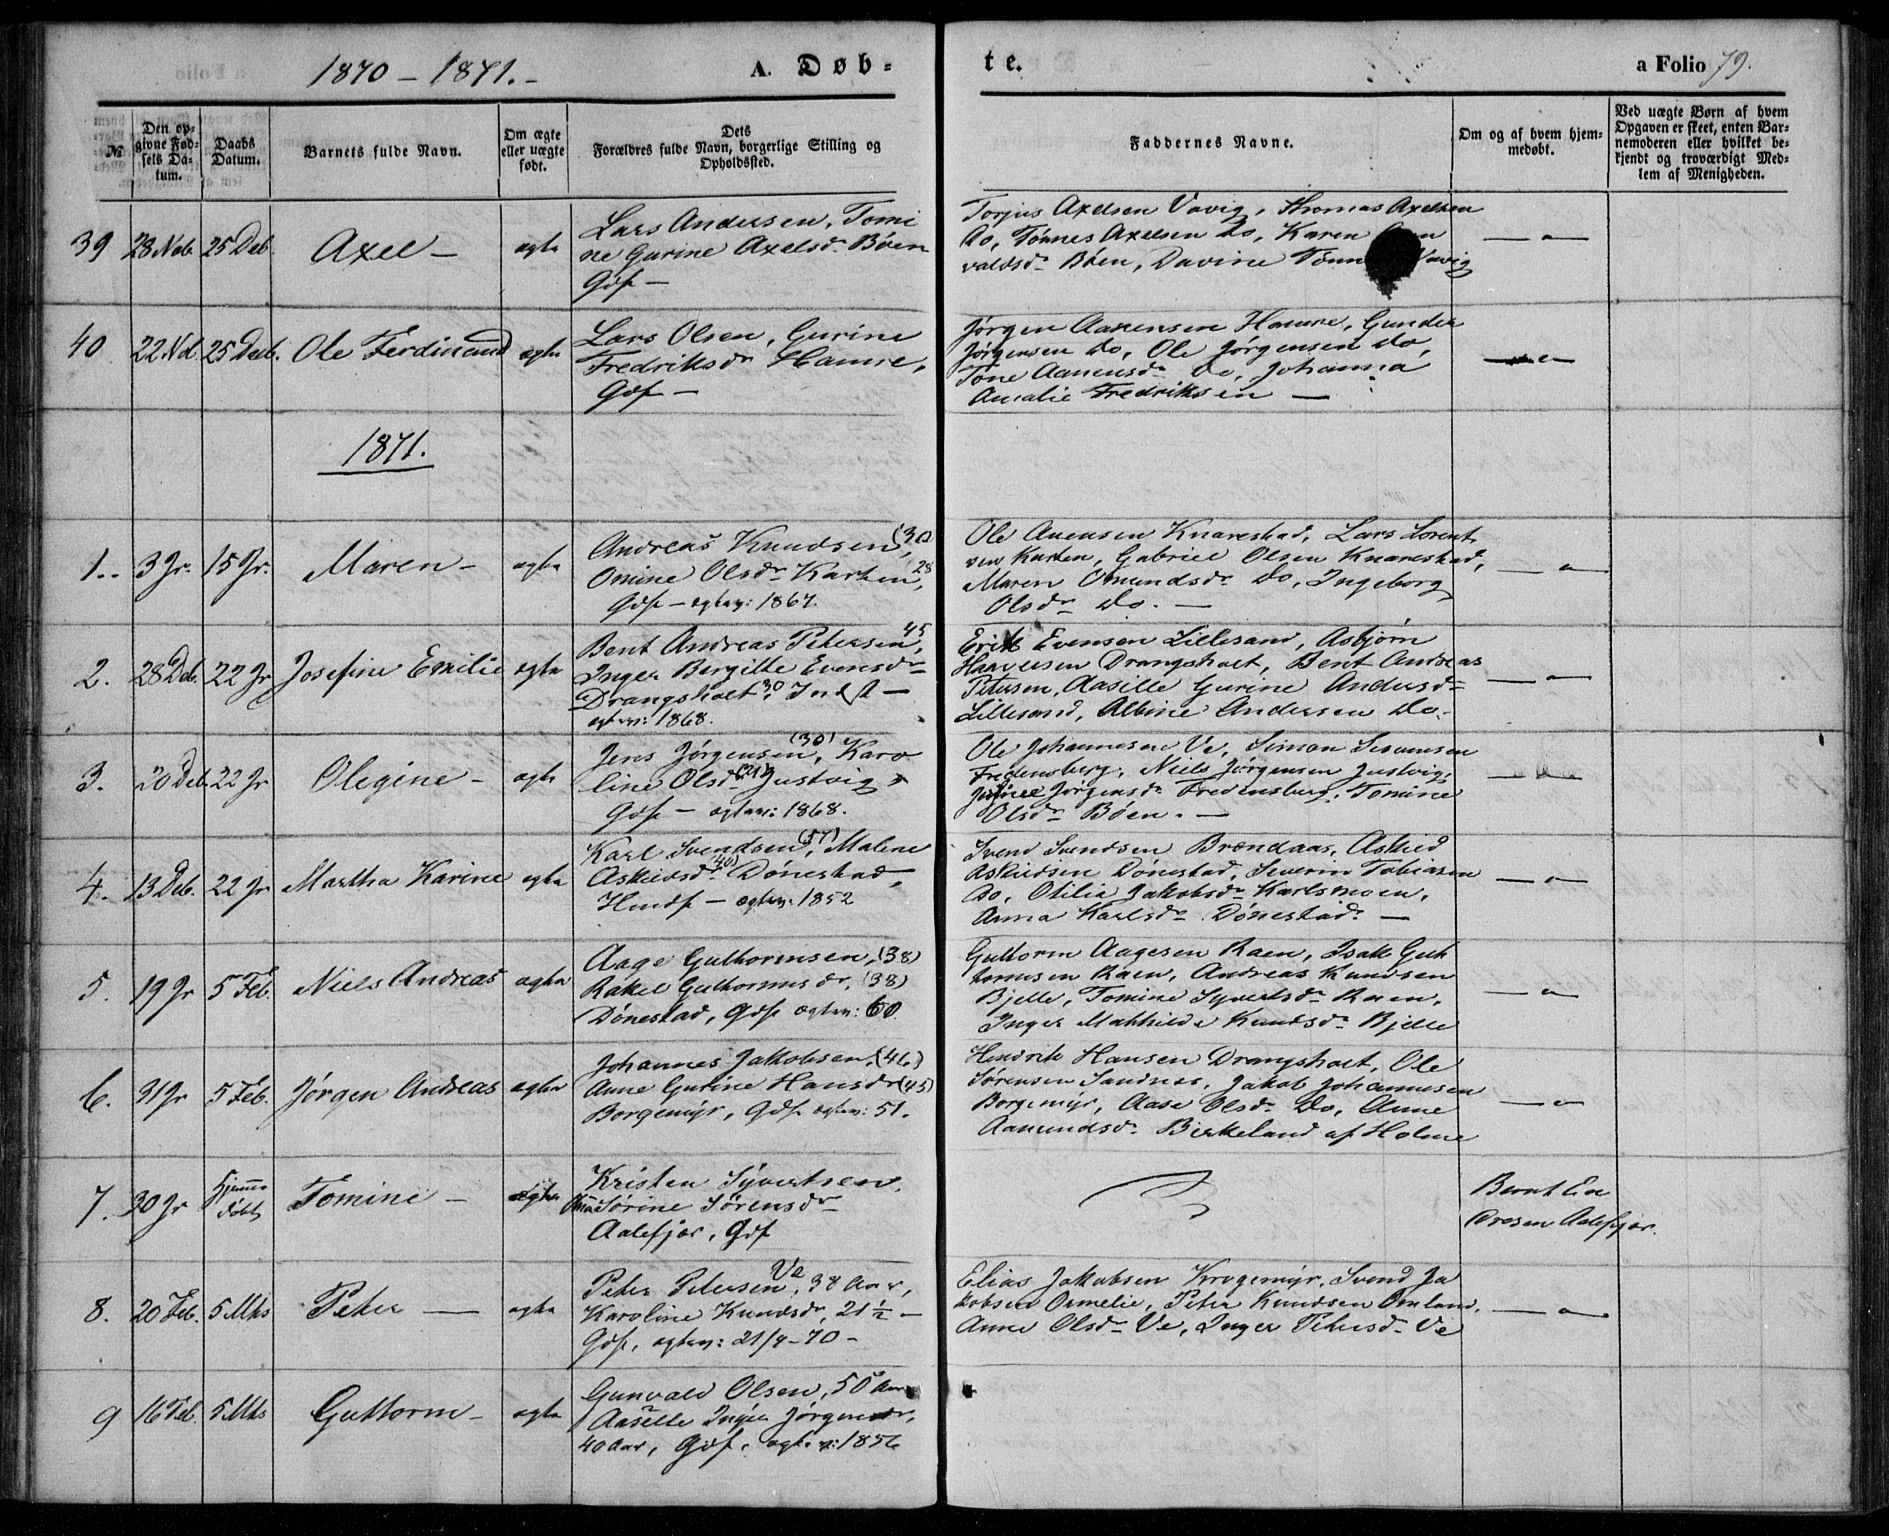 1870 - 1871. -
A. Døb-
te.
a Folio 79.
№
Den op-
givne Fød-
sels Da-
tum.
Daabs
Datum.
Barnets fulde Navn.
Om ægte
eller uægte
født.
Dets
Forældres fulde Navn, borgerlige Stilling og
Opholdssted.
Faddernes Navne.
Om og af hvem hjem-
medøbt.
Ved uægte Børn af hvem
Opgaven er skeet, enten Bar-
nemoderen eller hvilket be-
kjendt og troværdigt Med-
lem af Menigheden.
39 28 Nob. 25 Deb. Axel - ægte
Lars Andersen, Tomi
ne Gurine Axelsd. Bøen
Gdf -
Torjus Axelsen Vavig, Thomas Axelsen
Do, Tønnes Axelsen Do, Karen
valdsd. Bøen, Davine Tønn Vavig
40 22 Nd. 25 Deb. Ole Ferdinand ægte
Lars Olsen, Gurine
Fredriksdr Hamre,
Gdf -
Jørgen Aanensen Hamre, Gunder
Jørgensen Do, Ole Jørgensen Do,
Tone Aanensd. Do, Johanna
Amalie Fredriksen -
1871.
1. 3 Jr. 15 Jr. Maren - ægte
Andreas Knudsen, (30
Omine Olsdr Karten, 28
Gdf - ægtev: 1867.
Ole Anensen Knarestad, Lars Lorent
sen Karten, Gabriel Olsen Knarestad,
Maren Omundsdr Do, Ingeborg
Olsdr Do. -
2. 28 Deb. 22 Jr Josefine Emilie ægte
Bent Andreas Petersen, 45
Inger Bergitte Evensdr
Drangsholt 30 Indst -
ægtev: 1868.
Erik Evensen Lillesand, Asbjørn
Haavesen Drangsholt, Bent Andreas
Petersen, Aasille Gurine Andersd.
Lillesand, Albine Andersen Do.
3. 20 Deb. 22 Jr Olegine - ægte
Jens Jørgensen, (30) Karo
line Olsdr Justvig
Gdf - ægtev: 1868.
Ole Johannesen Ve, Simon Simonsen
Fredensberg, Niels Jørgensen Justvig,
Jørgensdr Fredensberg, Tomine
Olsdr Bøen. -
4. 13 Deb. 22 Jr Martha Karine ægte
Karl Svendsen, (57) Malene
Askildsdr (40) Dønestad,
Hmdf - ægtev. 1852
Svend Svendsen Brændaas, Askild
Askildsen Dønestad, Severin Tobiasen
Do, Otilia Jakobsdr Karlsmoen,
Anna Karlsdr Dønestad. -
5. 19 Jr 5 Feb. Niels Andreas ægte
Aage Guthormsen, (38)
Rakel Guthormsdr, (38)
Dønestad, Gdf ægtev: 60.
Guttorm Aagesen Raen, Isak Guth
formsen Raen, Andreas Knudsen
Bjelle, Tomine Syvertsdr Raen,
Inger Mathilde Knudsdr Bjelle
6. 31 Jr 5 Feb. Jørgen Andreas ægte
Johannes Jakobsen, (46)
Anne Gurine Hansdr (45)
Borgemyr, Gdf ægtev: 51.
Hendrik Hansen Drangsholt, Ole
Sørensen Sandnes, Jakob Johannesen
Borgemyr, Aase Olsdr Do, Anne
Aanundsdr Birkeland af Holme
7. 30 Jr Hjemme
døbt Tomine - ægte
Kristen Syvertsen,
Sørine Sørensdr
Aalefjær, Gdf
Bernt Ee
Aalefjær.
8. 20 Feb. 5 Mts Peter - ægte
Peter Petersen Ve, 38 Aar,
Karoline Knudsdr, 21 ½ -
Gdf, ægtev: 21/4 - 70 -
Elias Jakobsen Krogemyr, Svend Ja
kobsen Ormelie, Peter Knudsen Omland,
Anne Olsdr Ve, Inger Petersdr Ve
9 16 Feb. 5 Mts Guttorm - ægte
Gunvald Olsen, 50 Aar
Aaselle Inger Jørgensdr,
40 Aar, Gdf. ægtev: 1856